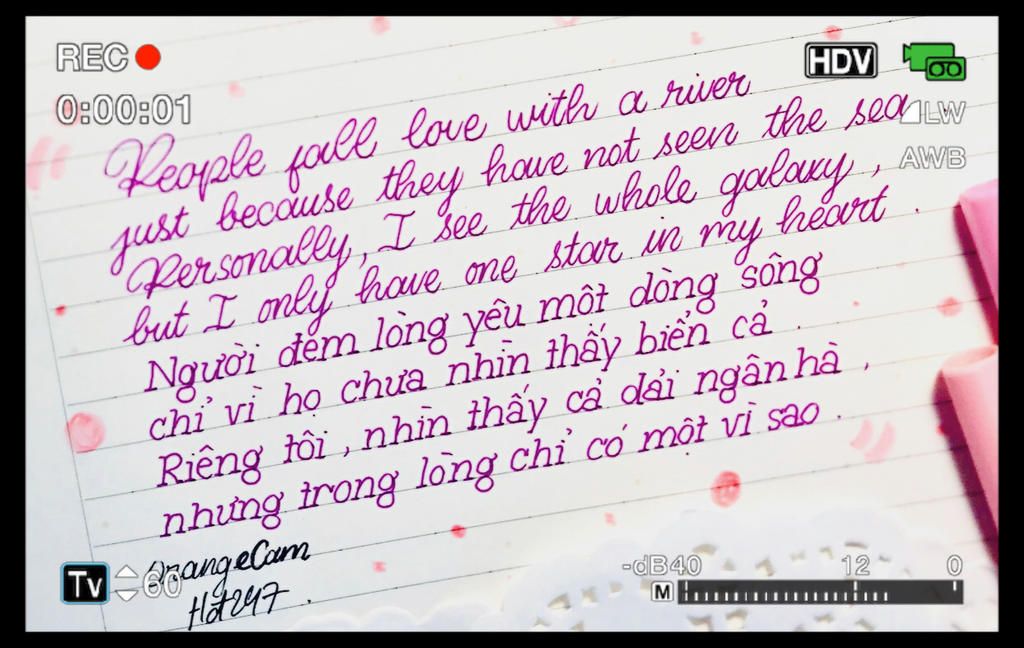 REC
0:00:01
HDV
LW
AWB
People fall love with a river
just because they have not seen the sea.
Personally, I see the whole galaxy,
but I only have one star in my heart.
Người đem lòng yêu một dòng sông
chỉ vì họ chưa nhìn thấy biển cả.
Riêng tôi, nhìn thấy cả dải ngân hà,
nhưng trong lòng chỉ có một vì sao.
OrangeCam
Hot247.
Tv 60
-dB40 12 0
M